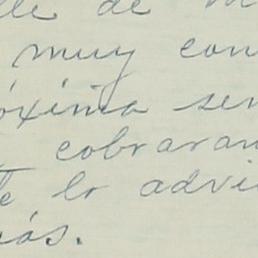 de
muy con
óxima sem
cobraran
te lo advi
ás.